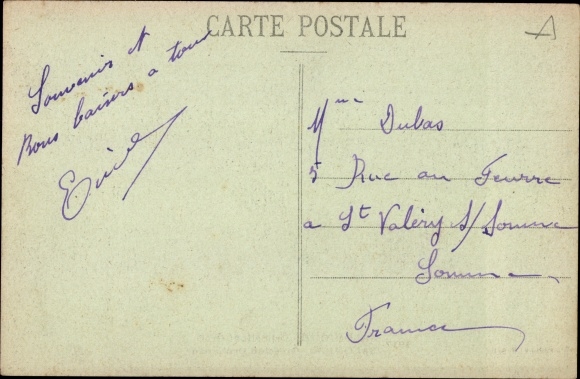 CARTE POSTALE
Souvenir et
Bons baisers a tous
Emile
Mme Dubas
5 Rue au Feurre
a St Valéry s/Somme
Somme
France